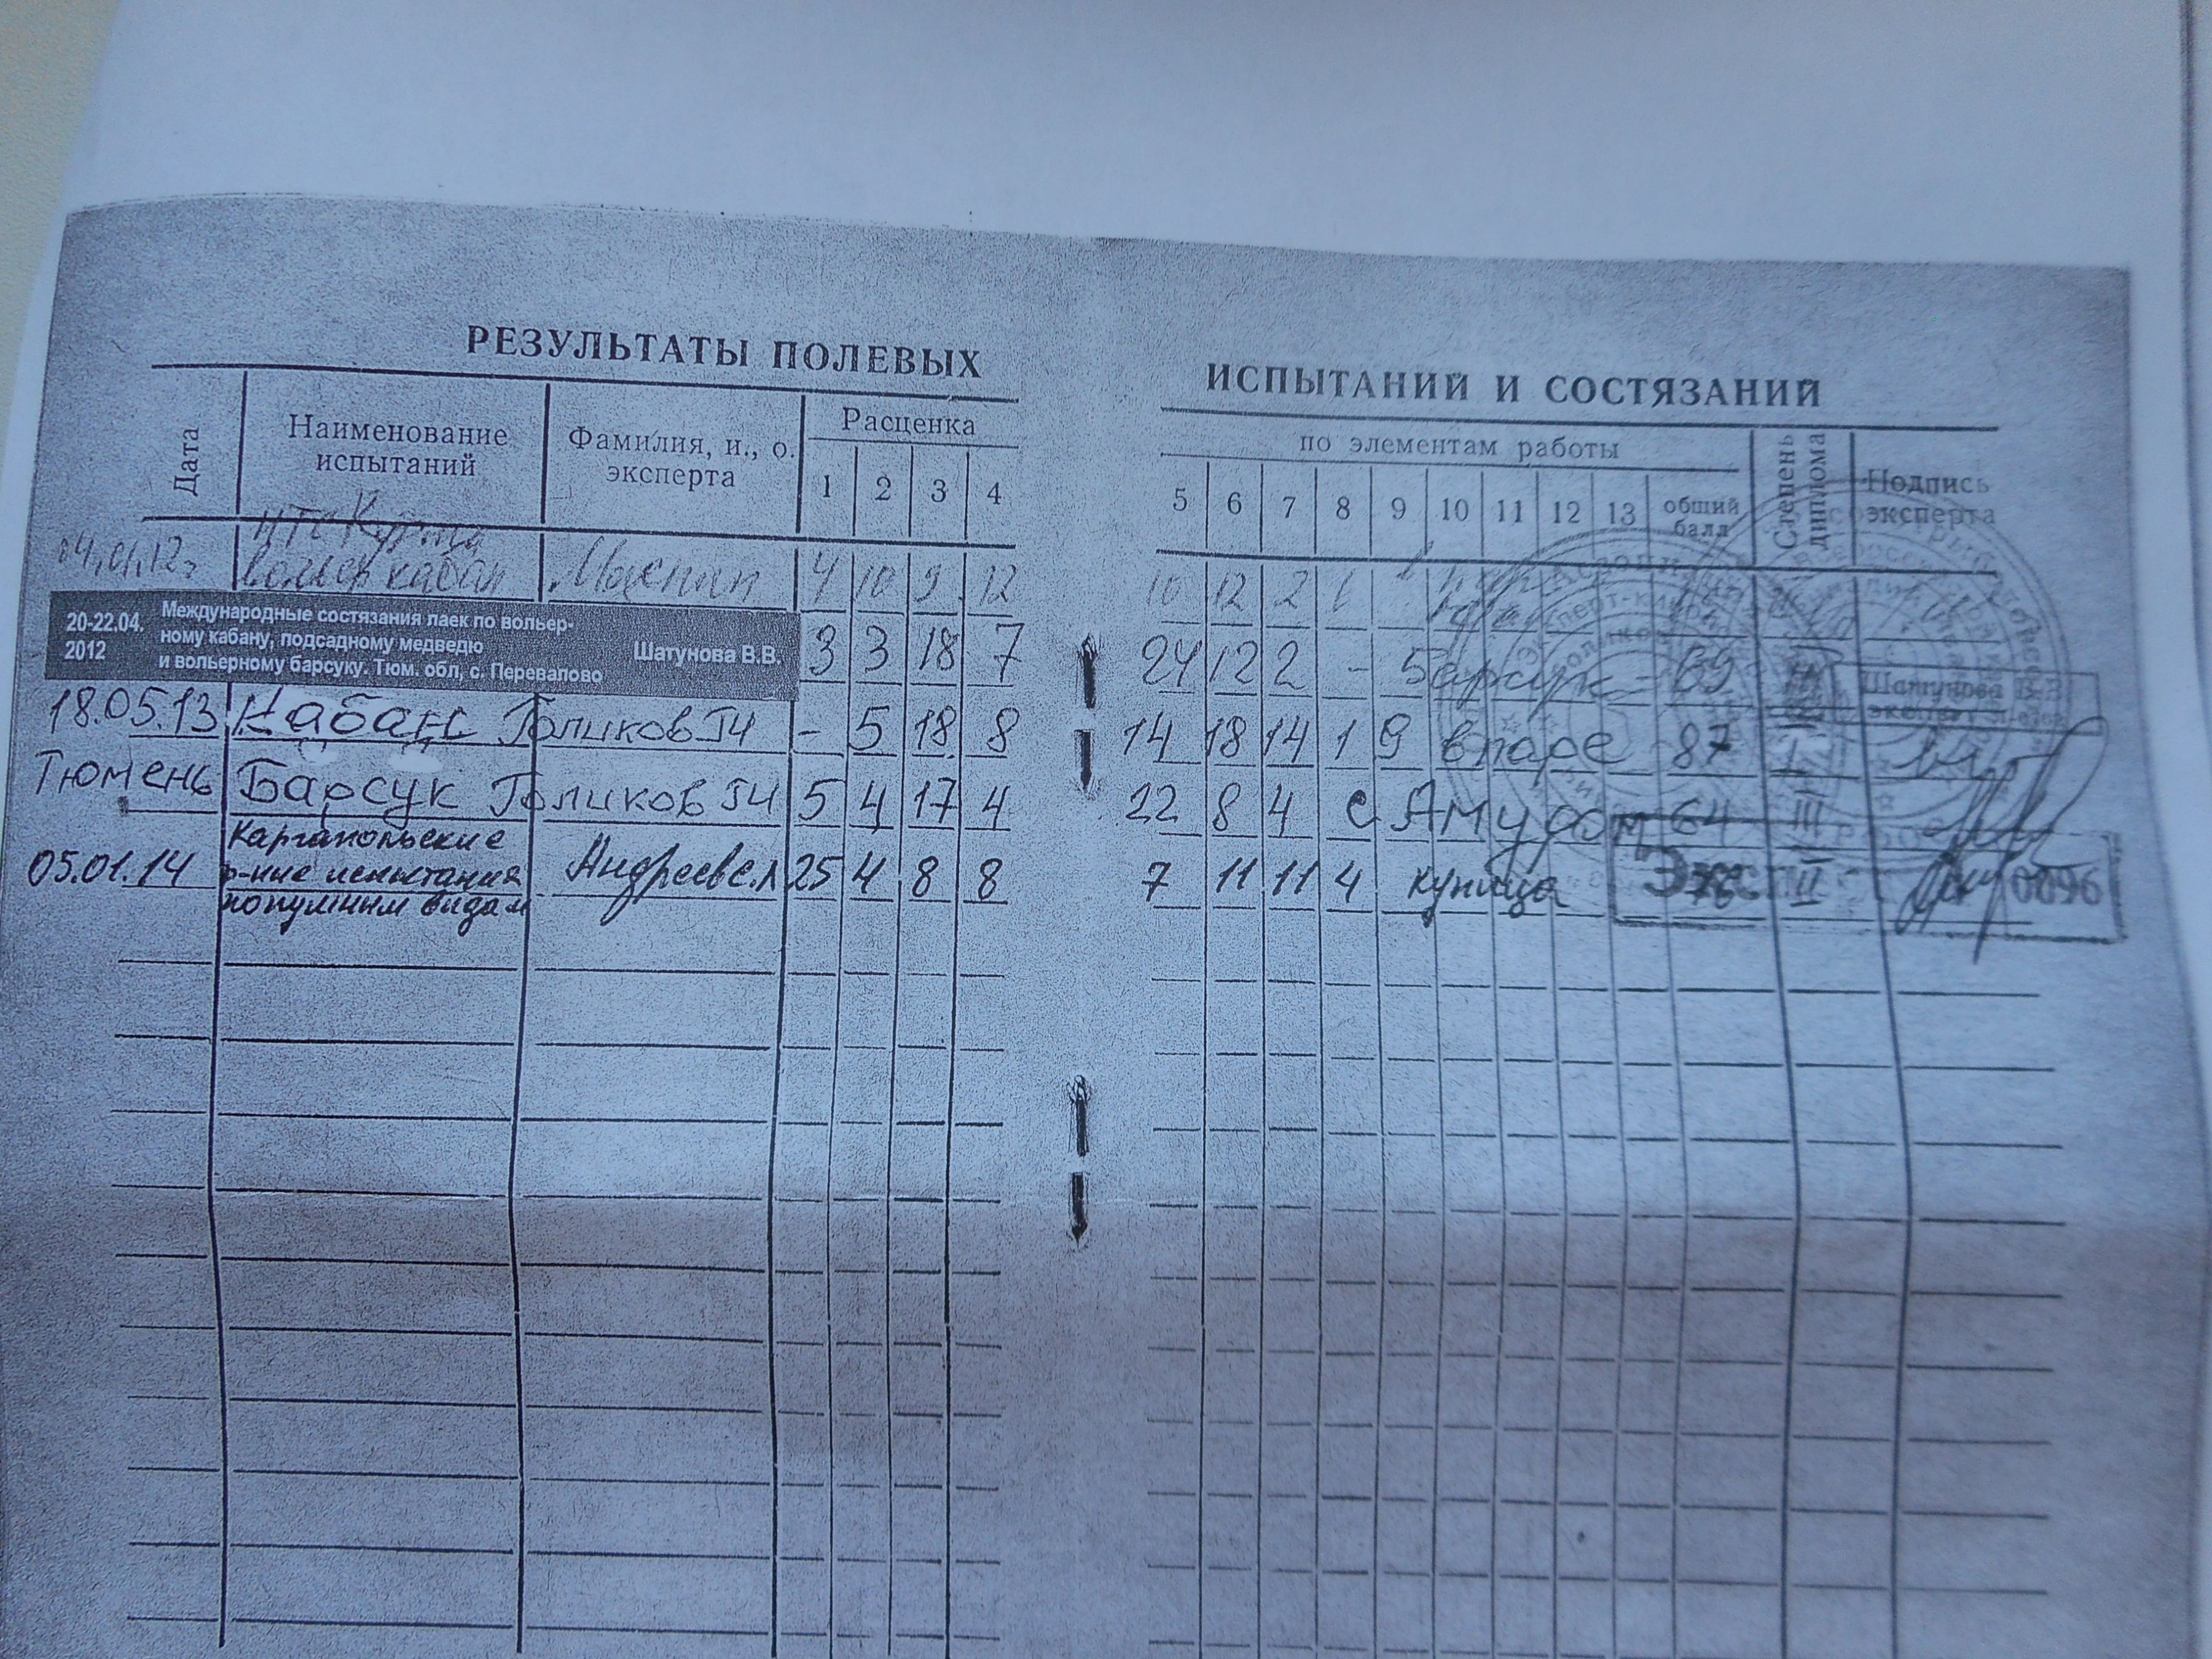 РЕЗУЛЬТАТЫ ПОЛЕВЫХ ИСПЫТАНИЙ И СОСТЯЗАНИЙ
Дата Наименование испытаний Фамилия, и., о. эксперта Расценка по элементам работы Степень диплома Подпись эксперта
1 2 3 4 5 6 7 8 9 10 11 12 13 общий балл
вольер кабан 4 10 9 12 10 12 2
20-22.04. 2012 Международные состязания лаек по вольер-
ному кабану, подсадному медведю
и вольерному барсуку. Тюм. обл, с. Перевалово
Шатунова В.В. 3 3 18 7 24 12 2 - Барсук - 69
Шатунова В.В.
18.05.13 Кабан Голиков ГИ - 5 18 8 14 18 14 1 9 в паре 87 I
Тюмень Барсук Голиков ГИ 5 4 17 4 22 8 4 с Амуром 64 III
Каргапольские
05.01.14 испытания Андреев с.л 25 4 8 8 7 11 11 4 куница 78 II 0096
видам